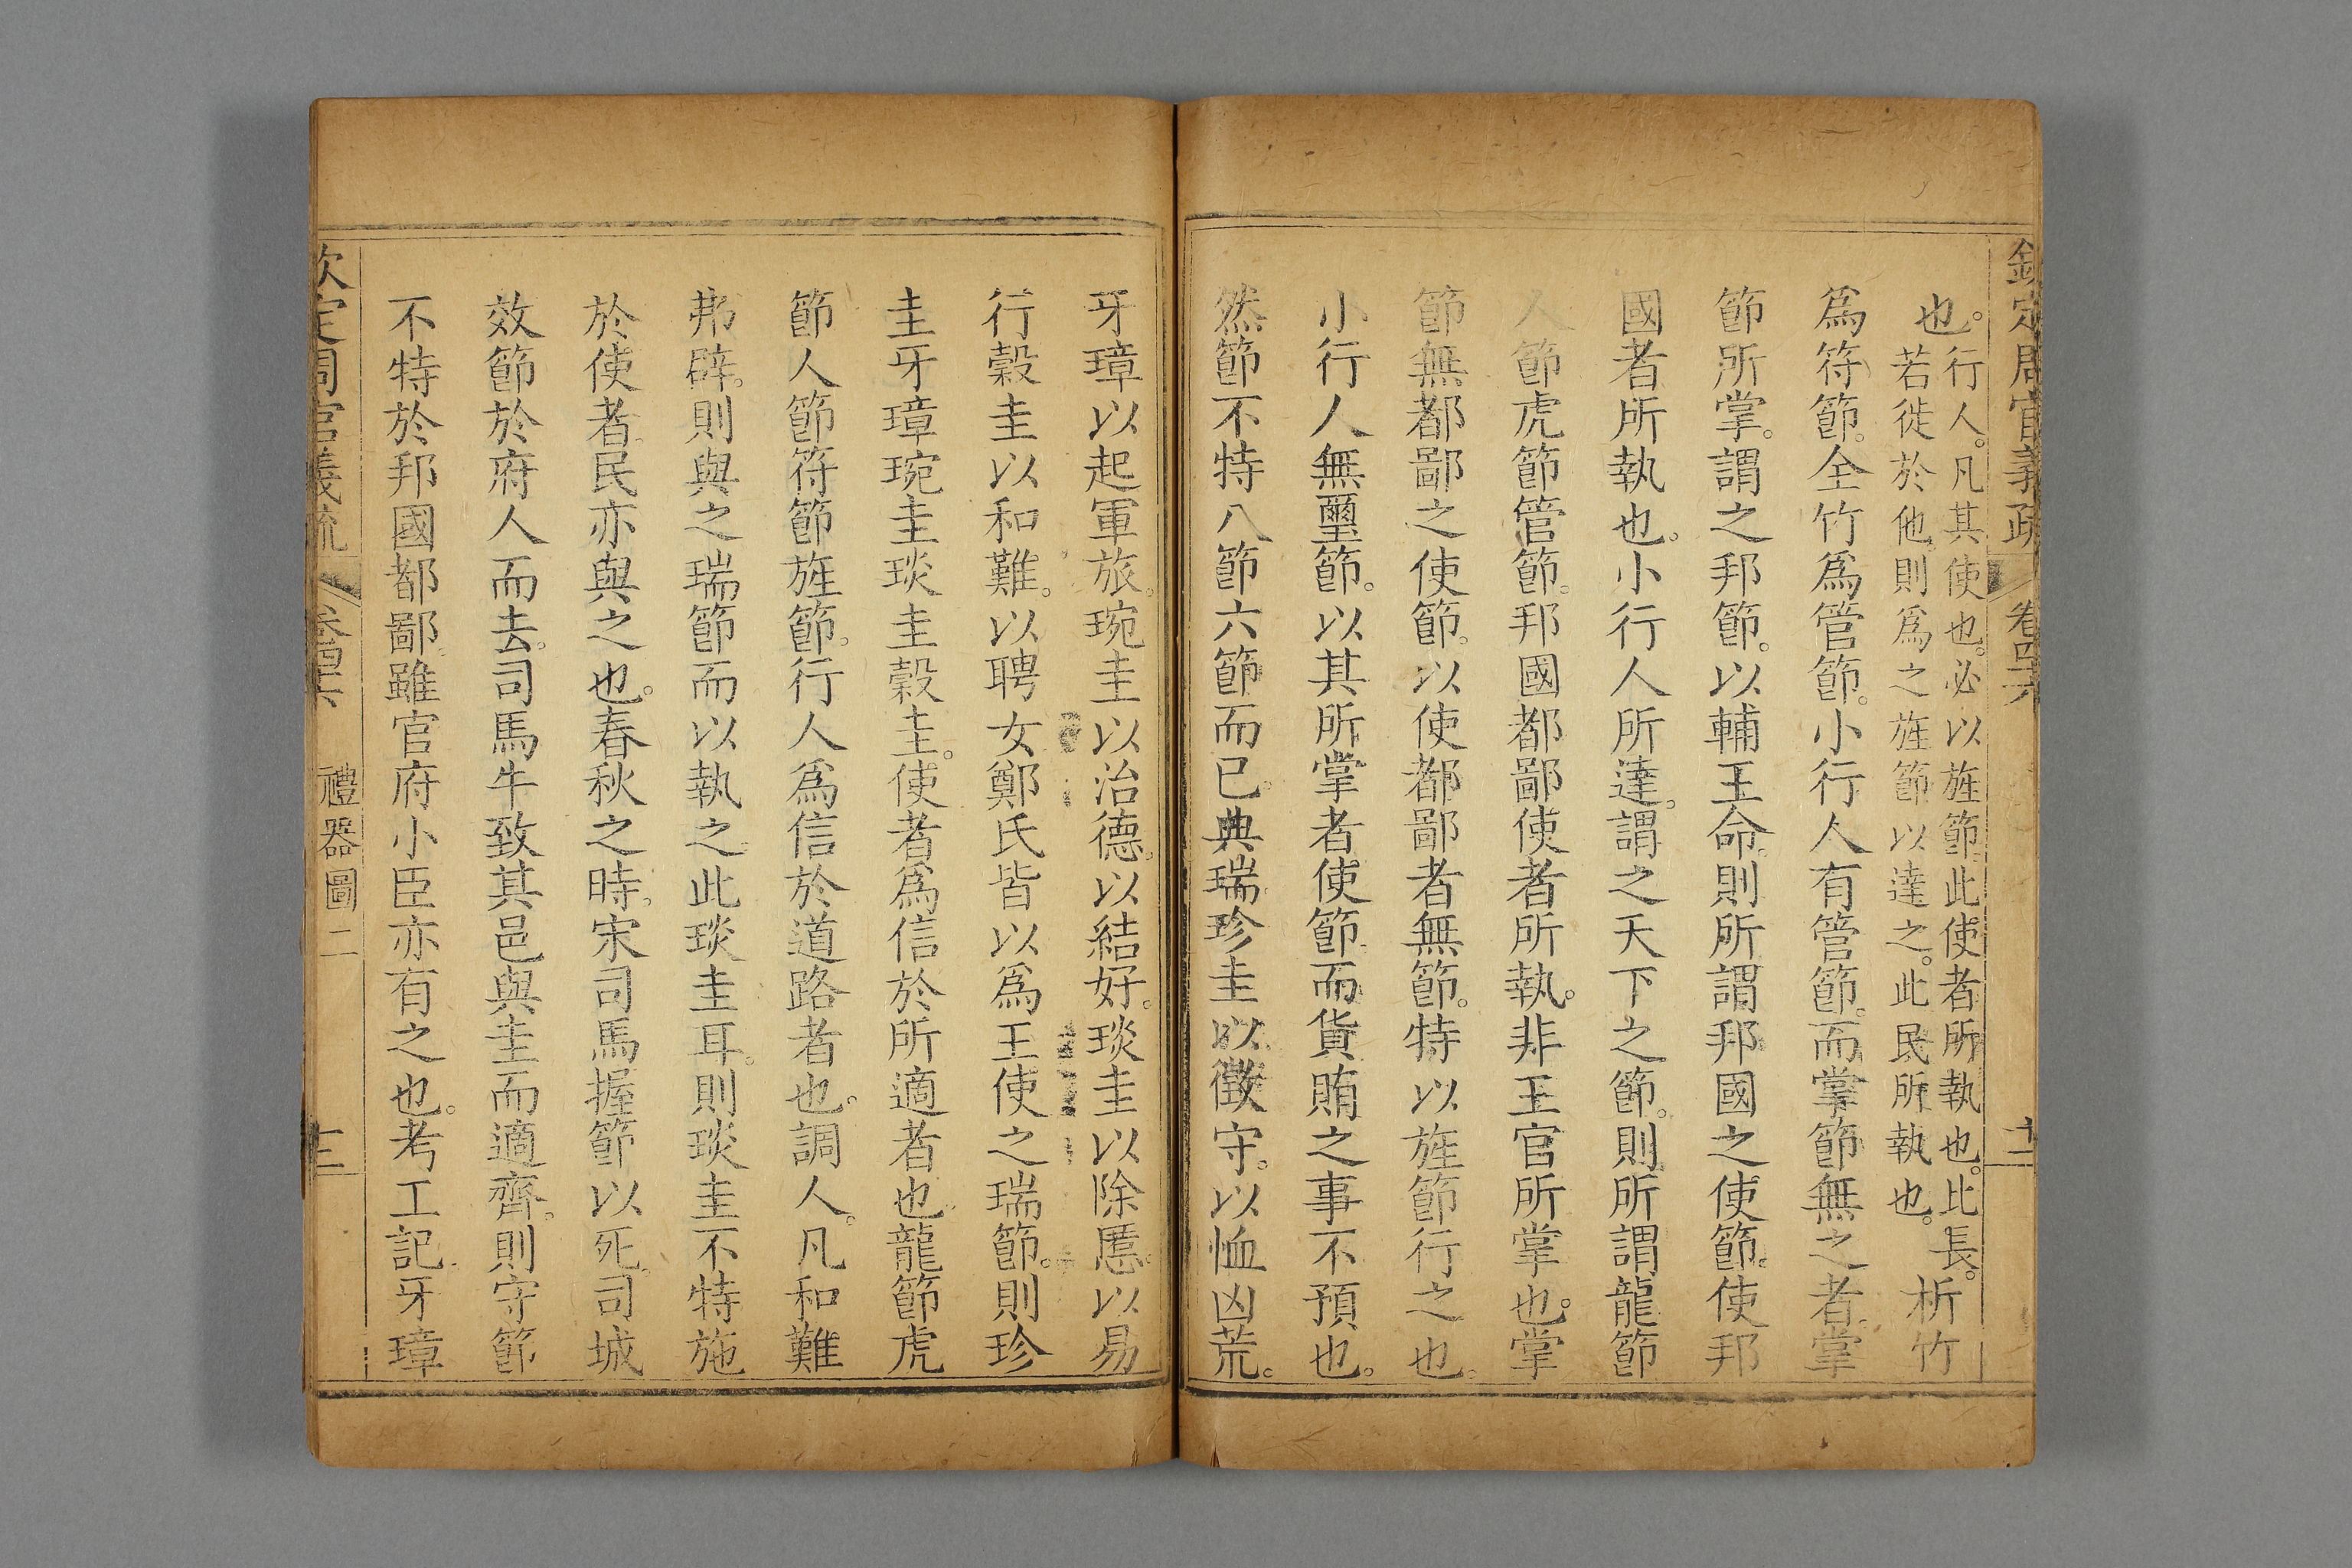 欽定周官義疏 卷四十六 十二
也。行人。凡其使也。必以旌節。此使者所執也。比長。
若徙於他。則爲之旌節以達之。此民所執也。析竹
爲符節。全竹爲管節。小行人有管節。而掌節無之者。掌
節所掌。謂之邦節。以輔王命。則所謂邦國之使節。使邦
國者所執也。小行人所達。謂之天下之節。則所謂龍節
人節虎節管節。邦國都鄙使者所執。非王官所掌也。掌
節無都鄙之使節。以使都鄙者無節。特以旌節行之也。
小行人無璽節。以其所掌者使節。而貨賄之事不預也。
然節不特八節六節而已。典瑞。珍圭以徵守。以恤凶荒。
牙璋以起軍旅。琬圭以治德。以結好。琰圭以除慝。以易
行。穀圭以和難。以聘女。鄭氏皆以爲王使之瑞節。則珍
圭牙璋琬圭琰圭穀圭。使者爲信於所適者也。龍節虎
節人節符節旌節。行人爲信於道路者也。調人。凡和難
弗辟。則與之瑞節而以執之。此琰圭耳。則琰圭不特施
於使者。民亦與之也。春秋之時。宋司馬握節以死。司城
效節於府人而去。司馬牛致其邑與圭而適齊。則守節
不特於邦國都鄙。雖官府小臣亦有之也。考工記。牙璋
欽定周官義疏 卷四十六 禮器圖二